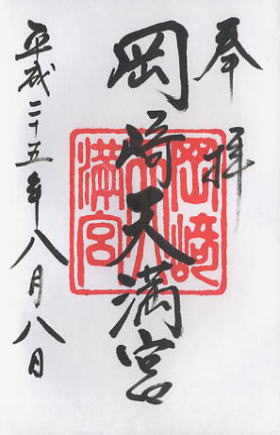 奉拝
岡崎天満宮
岡崎天満宮
平成二十五年八月八日